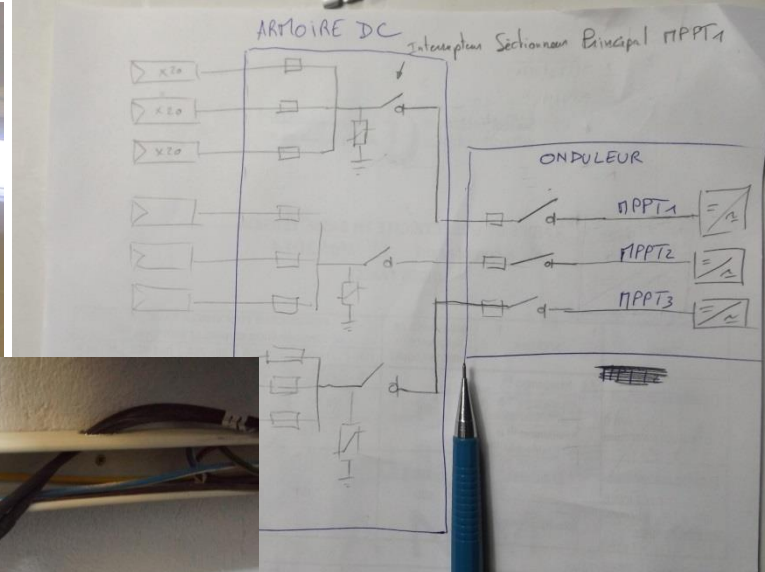 ARMOIRE DC
Interrupteur Séctionneur Principal MPPT1
x20
x20
x20
ONDULEUR
MPPT1
MPPT2
MPPT3